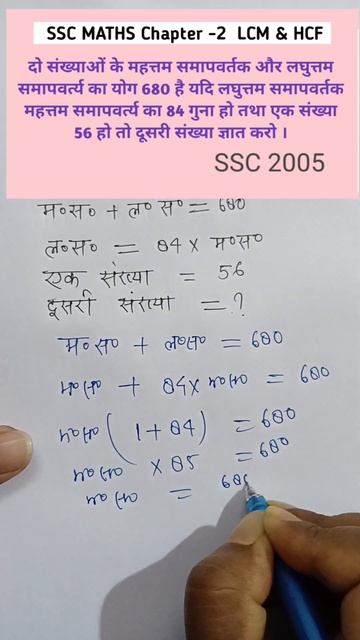 SSC MATHS Chapter -2 LCM & HCF
दो संख्याओं के महत्तम समापवर्तक और लघुत्तम
समापवर्त्य का योग 680 है यदि लघुत्तम समापवर्तक
महत्तम समापवर्त्य का 84 गुना हो तथा एक संख्या
56 हो तो दूसरी संख्या ज्ञात करो ।
SSC 2005
म०स० + ल०स० = 680
ल०स० = 84 × म०स०
एक संख्या = 56
दूसरी संख्या = ?
म०स० + ल०स० = 680
म०स० + 84× म०स० = 680
म०स० ( 1 + 84 ) = 680
म०स० × 85 = 680
म०स० = 680